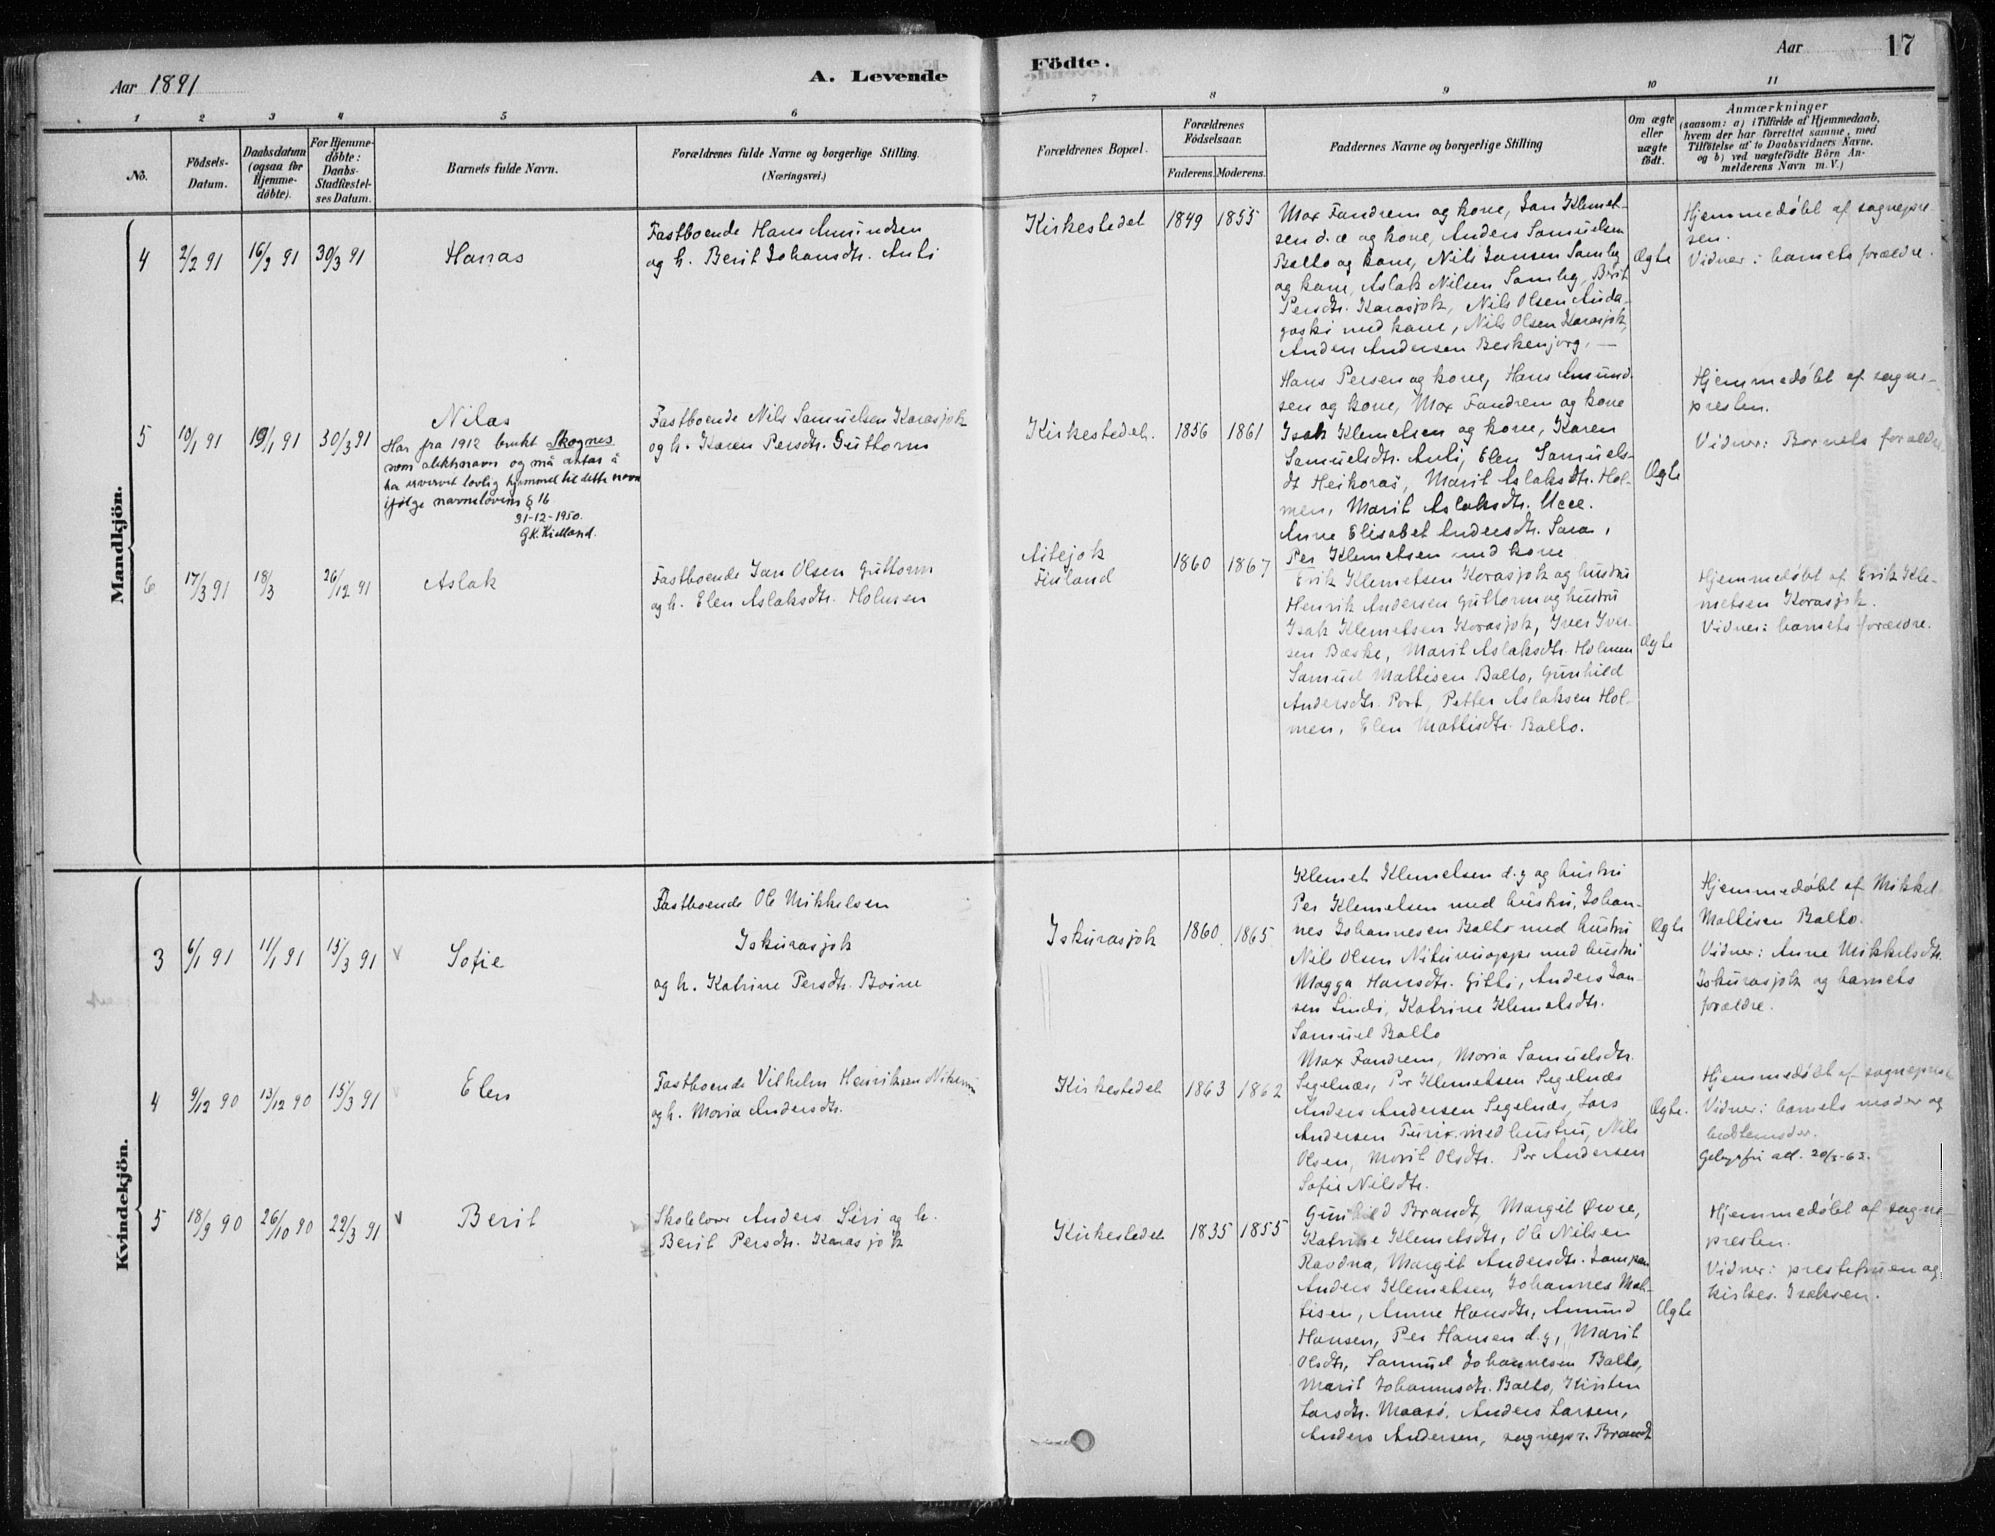 Aar 1891
A. Levende
Födte.
Aar
17
1
2
3
4
5
6
7
8
9
10
11
No.
Födsels-
Datum.
Daabsdatum
(ogsaa for
Hjemme-
döbte).
For Hjemme-
döbte:
Daabs-
Stadfæstel-
ses Datum.
Barnets fulde Navn.
Forældrenes fulde Navne og borgerlige Stilling.
(Næringsvei.)
Forældrenes Bopæl.
Forældrenes
Födselsaar.
Faderens.
Moderens.
Faddernes Navne og borgerlige Stilling
Om ægte
eller
uægte
født.
Anmærkninger
(saasom: a) i Tilfælde af Hjemmedaab,
hvem der har forrettet samme, med
Tilföielse af to Daabsvidners Navne.
og b) ved uægtefödte Börn An-
melderens Navn m.V.)
Mandkjön.
4
2/2 91
16/3 91
30/3 91
Hanas
Fastboende Hans Amundsen
og h. Berit Johansdtr. Anti
Kirkestedet
1849
1855
Max Fandrem og kone, Jan Klemet-
sen d. æ og kone, Anders Samuelsen
Balto og kone, Nils Jansen Samleg
og kone, Aslak Nilsen Samleg, Berit
Persdtr. Karasjok, Nils Olsen Anda-
gaski med kone, Nils Olsen Karasjok,
Anders Andersen Beskenjarg. —
Ægte
Hjemmedøbt af sognepre-
sten.
Vidner: barnets forældre.
5
10/1 91
19/1 91
30/3 91
Nilas
Har fra 1912 brukt Skognes
som slektsnavn og må antas å
ha ervervet lovlig hjemmel til dette navn
ifølge navnelovens § 16
31-12-1950.
G.K. Kielland.
Fastboende Nils Samuelsen Karasjok
og h. Karen Persdtr. Guttorm
Kirkestedet.
1856
1861
Hans Persen og kone, Hans Amund-
sen og kone, Max Fandrem og kone
Isak Klemetsen og kone, Karen
Samuelsdtr. Anti, Elen Samuels-
dt Heikoras, Marit Aslaksdtr. Hol-
men, Marit Aslaksdtr. Ucce.
Anne Elisabet Andersdtr. Sara,
Ægte
Hjemmedøbt af sogne-
presten.
Vidner: Barnets forældre
6
17/3 91
18/3
26/12 91
Aslak
Fastboende Jan Olsen Guttorm
og h. Elen Aslaksdtr. Holmen
Aitejok
Finland
1860
1867
Per Klemetsen med kone
Erik Klemetsen Korasjok og hustru
Henrik Andersen Guttorm og hustru
Isak Klemetsen Korasjok, Iver Iver-
sen Bæske, Marit Aslaksdtr. Holmen
Samuel Mattisen Balto, Gunhild
Andersdtr. Port, Petter Aslaksen Hol-
men, Elen Mattisdtr. Balto.
Ægte
Hjemmedøbt af Erik Kle-
metsen Korasjok.
Vidner: barnets forældre.
Kvindekjön.
3
6/1 91
11/1 91
15/3 91
v
Sofie
Fastboende Ole Mikkelsen
Iskurasjok
og h. Katrine Persdtr. Boine
Iskurasjok
1860.
1865
Klemet Klemetsen d.y og hustru
Per Klemetsen med hustru, Johan-
nes Johannesen Balto med hustru
Nils Olsen Niturvuoppe med hustru
Magga Hansdtr. Gitti, Anders Jan-
sen Lindi, Katrine Klemetsdtr.
Samuel Balto
Ægte
Hjemmedøbt af Mikkel
Mattisen Balto.
Vidner: Anne Mikkelsdtr.
Iskurasjok og barnets
forældre.
4
9/12 90
13/12 90
15/3 91
v
Elen
Fastboende Vilhelm Henriksen
og h. Maria Andersdtr.
Kirkestedet
1863
1862
Max Fandrem, Maria Samuelsdtr.
Segelnæs, Per Klemetsen Segelnæs
Anders Andersen Segelnæs, Lars
Andersen Turi med hustru, Nils
Olsen, Marit Olsdtr. Per Andersen
Sofie Nilsdtr.
Ægte.
Hjemmedøbt af sogneprest
Vidner: barnets moder og
bedstemoder.
20/3-63.
5
18/9 90
26/10 90
22/3 91
v
Berit
Skolelærer Anders Siri og h.
Berit Persdtr. Karasjok
Kirkestedet
1835
1855
Gunhild Brandt, Margit Øvre,
Katrine Klemetsdtr, Ole Nilsen
Ravdna, Margit Andersdtr.
Anders Klemetsen, Johannes Mat-
tisen, Anne Hansdtr, Amund
Hansen, Per Hansen d.y, Marit
Olsdtr, Samuel Johannesen Balto,
Marit Johannesdtr. Balto, Kirsten
Larsdtr. Maasø, Anders Larsen,
Anders Andersen, sognepr. Brandt
Ægte
Hjemmedøbt af sogne-
presten.
Vidner: prestefruen og
kirkes. Isaksen.